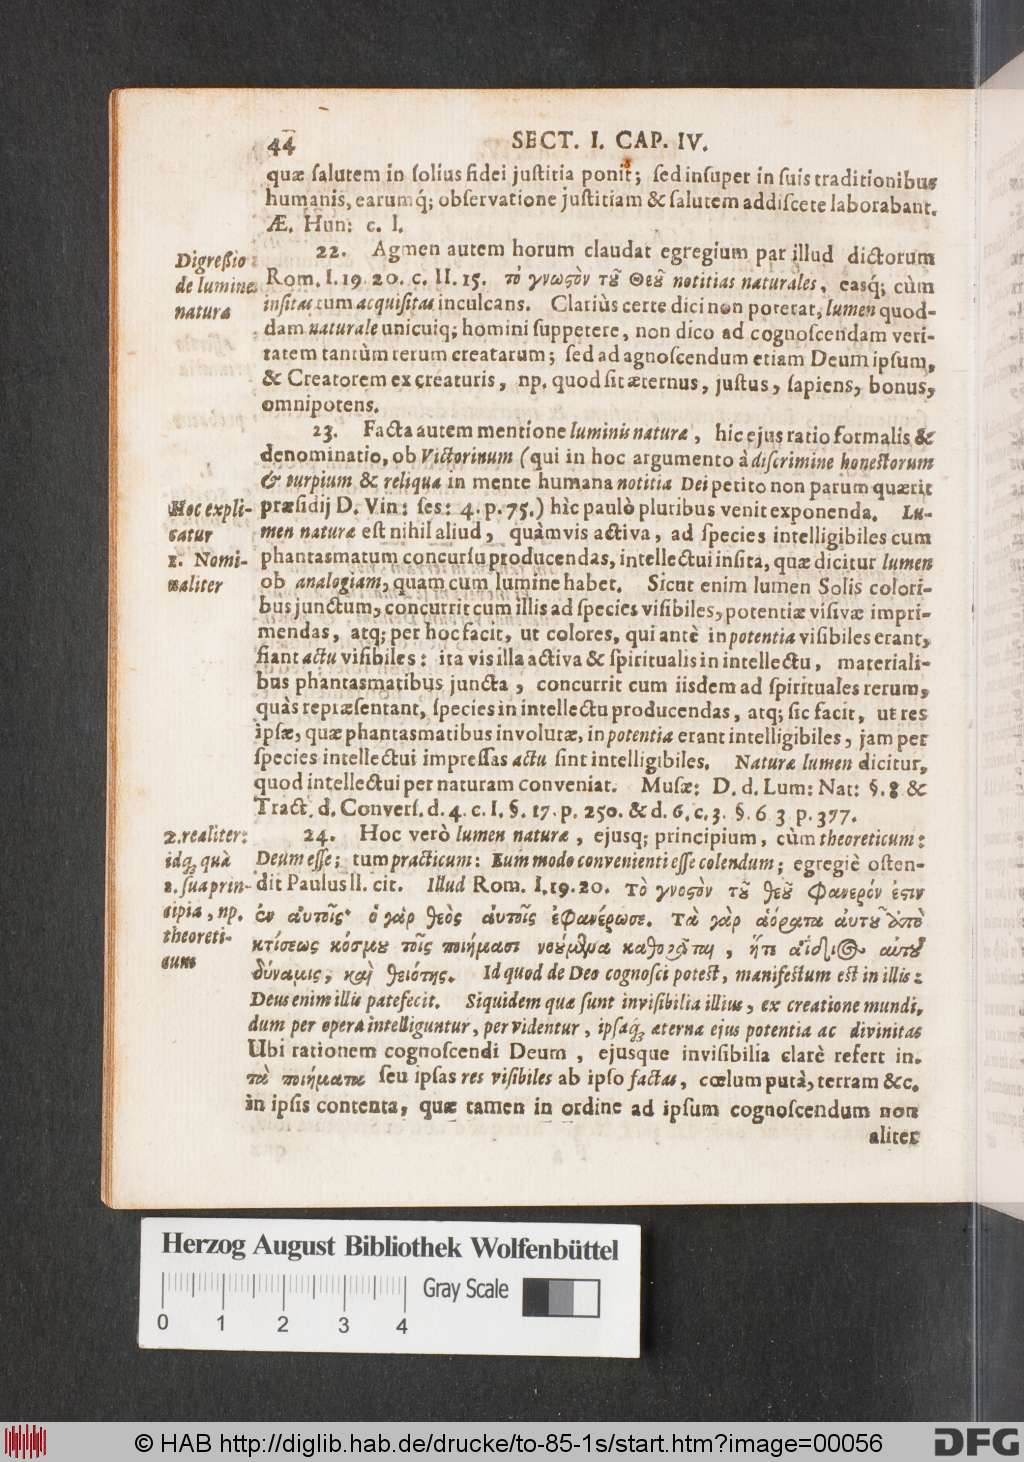 44 SECT. I. CAP. IV.
quæ ſalutem in ſolius fidei juſtitia ponit; ſed inſuper in ſuis traditionibus
humanis, earumq́; obſervatione juſtitiam & ſalutem addiſcere laborabant.
Æ. Hun: c. I.
22. Agmen autem horum claudat egregium par illud dictorum
Digreßio
Rom. I. 19. 20. c. II. 15. τὸ γνωςὸν τȣ͂ Θεȣ͂ notitias naturales, easq́; cùm
de lumine
inſitas tum acquiſitas inculcans. Clatiùs certe dici non poterat, lumen quod-
naturæ
dam naturale unicuiq; homini ſuppetere, non dico ad cognoſcendam veri-
tatem tantùm rerum creatarum; ſed ad agnoſcendum etiam Deum ipſum,
& Creatorem ex creaturis, np. quod ſit æternus, juſtus, ſapiens, bonus,
omnipotens.
23. Facta autem mentione luminis naturæ, hic ejus ratio formalis &
denominatio, ob Victorinum (qui in hoc argumento à diſcrimine honeſtorum
& turpium & reliqua in mente humana notitia Dei petito non parum quærit
Hoc expli-
præſidij D. Vin: ſes: 4. p. 75.) hìc paulò pluribus venit exponenda. Lu-
catur
men naturæ eſt nihil aliud, quàm vis activa, ad ſpecies intelligibiles cum
1. Nomi-
phantasmatum concurſu producendas, intellectui inſita, quæ dicitur lumen
naliter
ob analogiam, quam cum lumine habet. Sicut enim lumen Solis colori-
bus junctum, concurrit cum illis ad ſpecies viſibiles, potentiæ viſivæ impri-
mendas, atq; per hoc facit, ut colores, qui antè in potentia viſibiles erant,
fiant actu viſibiles: ita vis illa activa & ſpiritualis in intellectu, materiali-
bus phantasmatibus juncta, concurrit cum iisdem ad ſpirituales rerum,
quàs repræſentant, ſpecies in intellectu producendas, atq; ſic facit, ut res
ipſæ, quæ phantasmatibus involutæ, in potentia erant intelligibiles, jam per
ſpecies intellectui impreſſas actu ſint intelligibiles. Naturæ lumen dicitur,
quod intellectui per naturam conveniat. Muſæ: D. d. Lum: Nat: §. 8 &
Tract. d. Converſ. d. 4. c. I. §. 17. p. 250. & d. 6. c. 3. §. 6 3 p. 377.
2. realiter:
24. Hoc verò lumen naturæ, ejusq; principium, cùm theoreticum:
idq́ꝫ quà
Deum eſſe; tum practicum: Eum modo convenienti eſſe colendum; egregiè oſten-
1. ſua prin-
dit Paulus ll. cit. Illud Rom. I. 19. 20. Τὸ γνοςὸν τȣ͂ θεȣ͂ Φανερόν ἐςιν
cipia, np.
ἐν αὐτοῖς· ὁ γὰρ θεὸς αὐτοῖς ἐΦανέρωσε. Τὰ γὰρ ἀόρατα ἀυτȣ͂ ἀπὸ
theoreti-
κτίσεως κόσμȣ τοῖς ποιήμασι νοȣ́μενα καθορᾶται, ἥτε ἀΐδιος ἀυτȣ͂
cum
δύναμις, καὶ θειότης. Id quod de Deo cognoſci poteſt, manifeſtum eſt in illis:
Deus enim illis patefecit. Siquidem quæ ſunt inviſibilia illius, ex creatione mundi,
dum per opera intelliguntur, pervidentur, ipſaq́ꝫ æterna ejus potentia ac divinitas
Ubi rationem cognoſcendi Deum, ejusque inviſibilia clarè refert in.
τὰ ποιήματα ſeu ipſas res viſibiles ab ipſo factas, cœlum putà, terram &c.
in ipſis contenta, quæ tamen in ordine ad ipſum cognoſcendum non
aliter
Herzog August Bibliothek Wolfenbüttel
Gray Scale
0 1 2 3 4
© HAB http://diglib.hab.de/drucke/to-85-1s/start.htm?image=00056
DFG